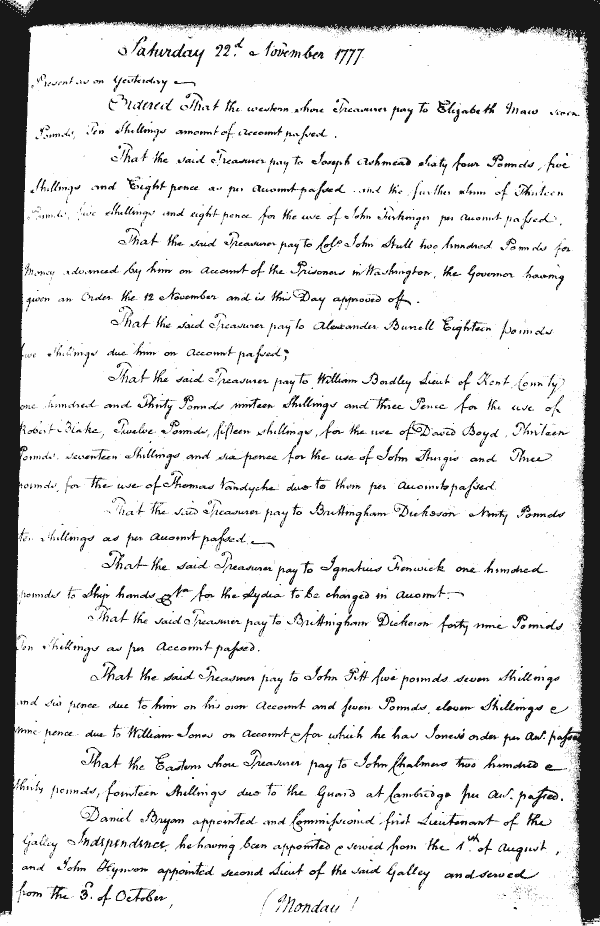 Saturday 22.d November 1777
Present as on Yesterday
Ordered That the western shore Treasurer pay to Elizabeth Maw seven
Pounds, Ten Shillings amount of Account passed.
That the said Treasurer pay to Joseph Ashmead Sixty four Pounds, five
Shillings and Eight pence as per Account passed and the further Sum of Thirteen
Pounds, five Shillings and eight pence for the use of John per Account passed.
That the said Treasurer pay to Colo. John Stull two hundred Pounds for
Money advanced by him on Account of the Prisoners in Washington, the Governor having
given an Order the 12 November and is this Day approved off.
That the said Treasurer pay to Alexander Burrell Eighteen pounds
five Shillings due him on Account passed;
That the said Treasurer pay to William Bordley Lieut of Kent County
one hundred and Thirty Pounds nineteen Shillings and three Pence for the use of
Robert Blake, Twelve Pounds, fifteen shillings, for the use of David Boyd, Thirteen
Pounds, seventeen Shillings and six pence for the use of John Sturgis and Three
pounds, for the use of Thomas Vandyche due to them per Accounts passed.
That the said Treasurer pay to Brittingham Dickeson Ninty Pounds
ten Shillings as per Account passed.
That the said Treasurer pay to Ignatius Fenwick one hundred
pounds to Ship hands &ca for the Lydia to be charged in Account.
That the said Treasurer pay to Brittingham Dickeson forty nine Pounds
Ten Shillings as per Account passed.
That the said Treasurer pay to John Pitt five pounds seven Shillings
and six pence due to him on his own Account and seven Pounds, eleven Shillings &
nine pence due to William Jones on Account & for which he has Jones's order per Acct. passed
That the Eastern shore Treasurer pay to John Chalmers two hundred &
thirty pounds, fourteen Shillings due to the Guard at Cambridge per Acct. passed.
Daniel Bryan appointed and Commissioned first Lieutenant of the
Galley Independence, he having been appointed & served from the 1st. of August,
and John Hynson appointed second Lieut of the said Galley and served
from the 3d. of October,
(Monday!